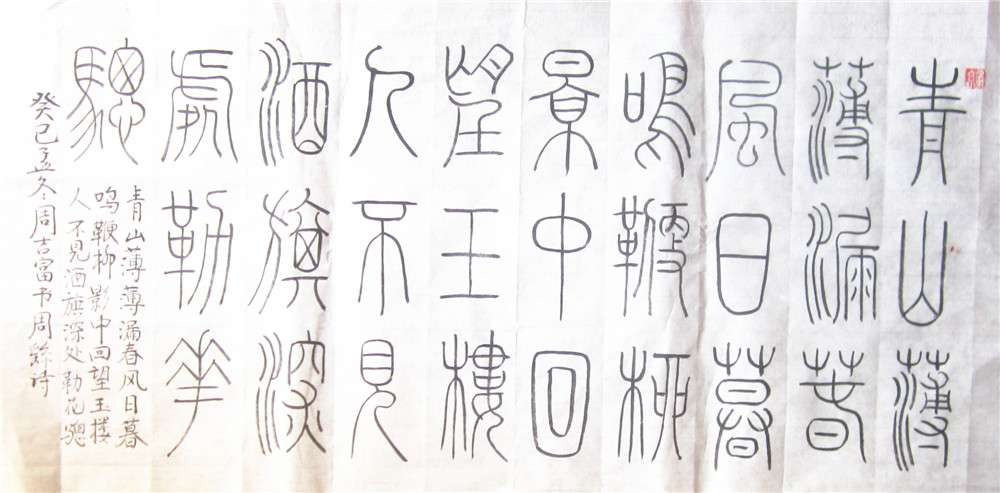 青山薄
薄漏春
風日暮
鳴鞭柳
景中回
望王樓
人不見
酒旗深
處勒花
驄
青山薄薄漏春风日暮
鸣鞭柳影中回望玉楼
人不见酒旗深处勒花骢
癸巳孟冬周吉富书周繇诗